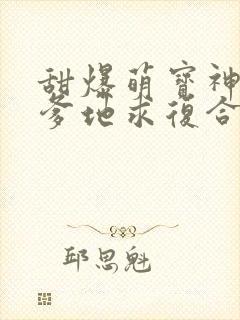 甜爆萌寶神
爹地求復合
邱思魁